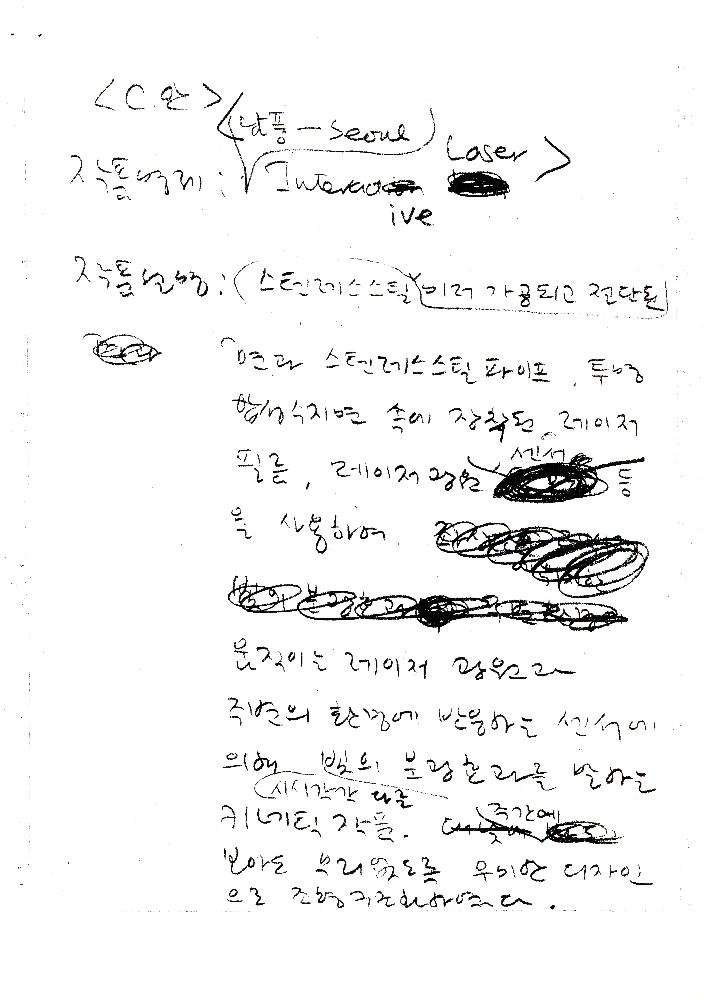 <C안>
(남풍 - Seoul)
작품명제 : Interactive Laser >
작품설명 : (스텐레스스틸 미러 가공되고 절단된
면과 스텐레스스틸 파이프, 투명
합성수지면 속에 장착된 레이저
필름, 레이저 광원 센서 등
을 사용하여
움직이는 레이저 광원과
주변의 환경에 반응하는 센서에
의해 빛의 분광효과를 발하는
시시각각 다른
키네틱 작품. 주간에
보아도 무리없도록 우미한 디자인
으로